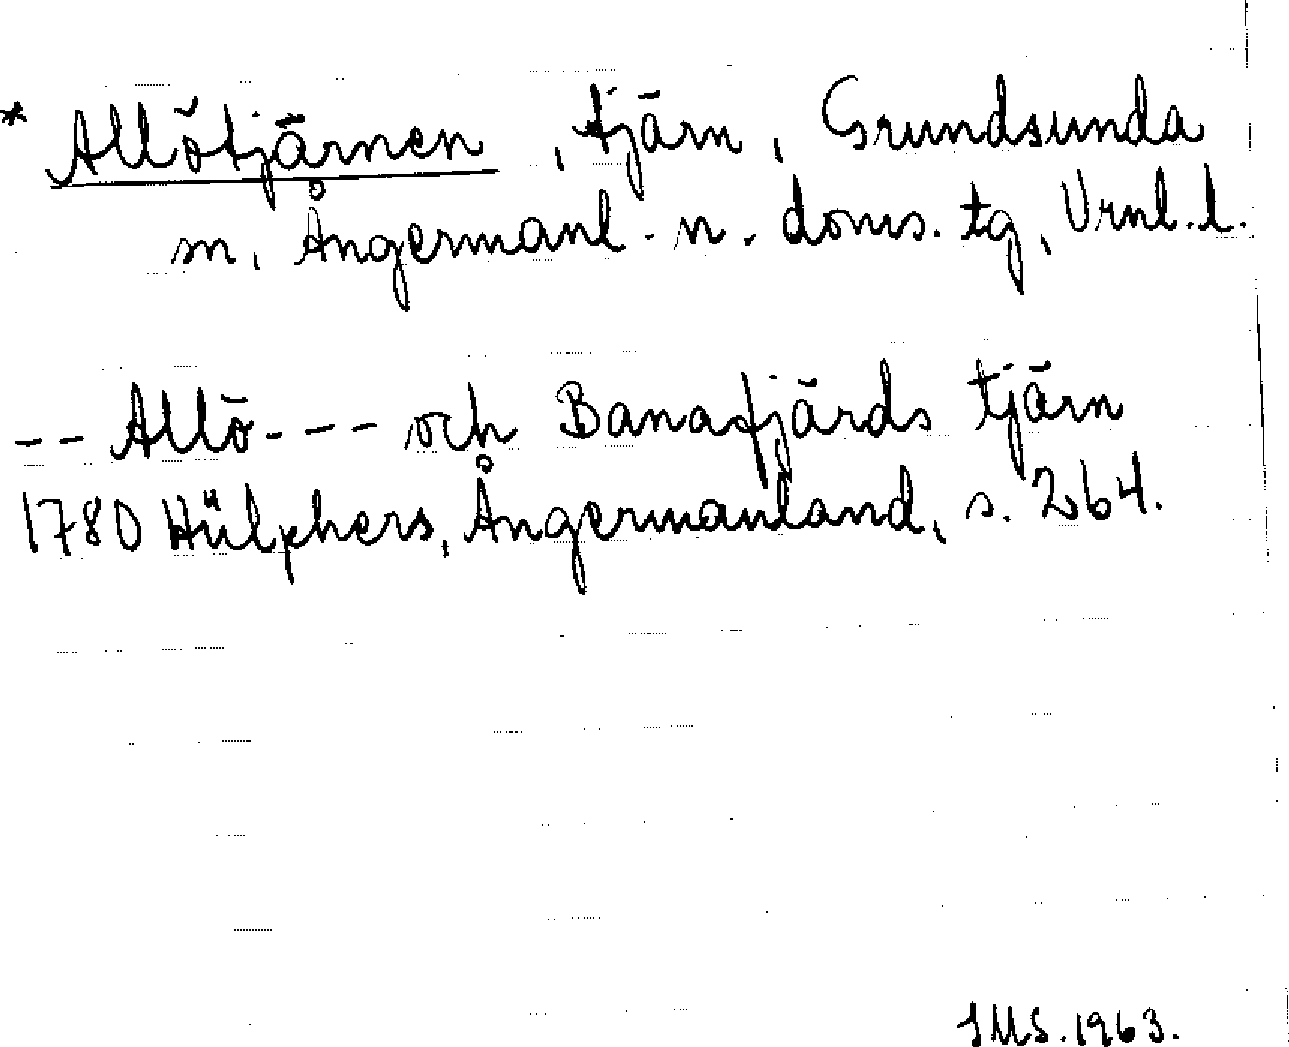 * Allötjärnen, tjärn, Grundsunda
sn, Ångermanl. n. doms. tg, Vrnl. l.
-- Allö --- och Banafjärds tjärn
1780 Hülphers, Ångermanland, s. 264.
SMS. 1963.